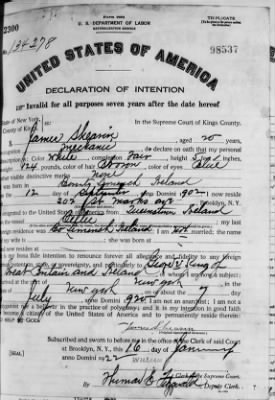 2300
U. S. DEPARTMENT OF LABOR
NATURALIZATION SERVICE
TRIPLICATE
134278
98537
UNITED STATES OF AMERICA
DECLARATION OF INTENTION
Invalid for all purposes seven years after the date hereof
State of New York,
County of Kings
In the Supreme Court of Kings County.
I, James Shearin, aged 20 years,
occupation Mechanic, do declare on oath that my personal
description is: Color White, complexion Fair, height 5 feet inches,
weight 124 pounds, color of hair Brown, color of eyes Blue
other visible distinctive marks None
Ireland
on the 12 day of September, anno Domini 1902; I now reside
at 202 St Marks ave
emigrated to the United States of America from Queenstown Ireland
on the vessel Celtic; my last
foreign residence was Ireland; I am not married; the name
of my wife is ; she was born at
and now resides at
It is my bona fide intention to renounce forever all allegiance and fidelity to any foreign
George V King of
Great Britain and Ireland, of whom I am now a subject;
I arrived at the port of New York, in the
State of New York, on or about the 7 day
of July, anno Domini 1920; I am not an anarchist; I am not a
polygamist nor a believer in the practice of polygamy; and it is my intention in good faith
to become a citizen of the United States of America and to permanently reside therein:
SO HELP ME GOD.
James Shearin
Subscribed and sworn to before me in the office of the Clerk of said Court
at Brooklyn, N. Y., this 16 day of January
anno Domini 1922
[SEAL]
Clerk of the Supreme Court.
By Thomas E. Fitzgerald, Deputy Clerk.